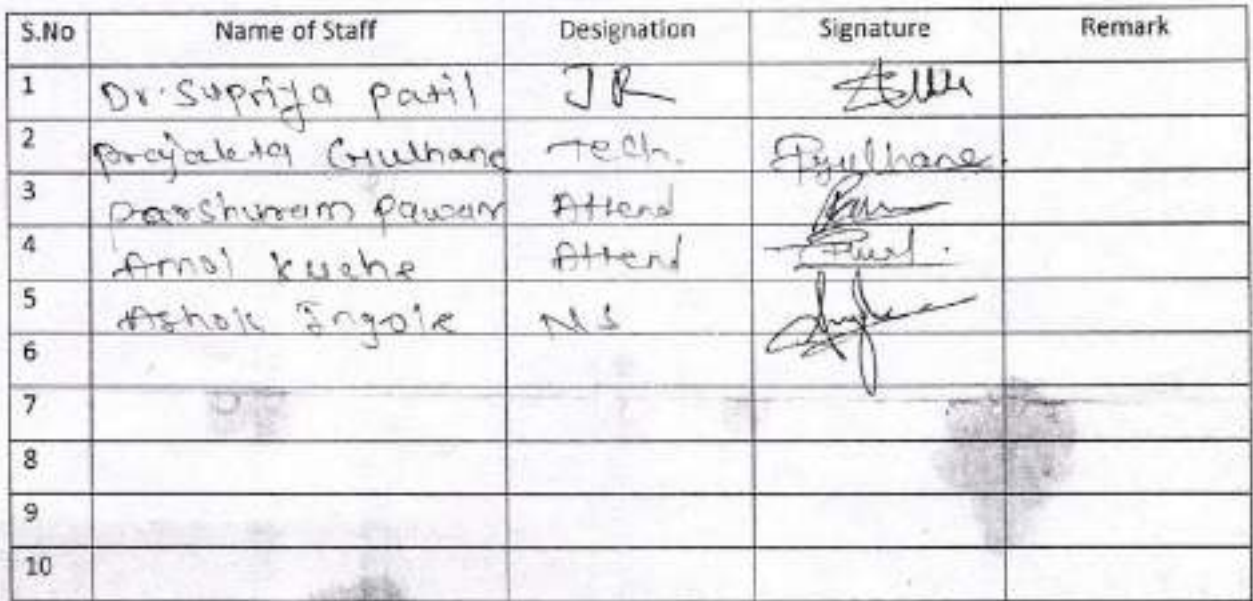 S.No Name of Staff Designation Signature Remark
1 Dr. Supriya Patil JR
2 Prajakta Gulhane Tech. Pgulhane.
3 Parshuram Pawar Attend
4 Amol Kushe Attend
5 Ashok Ingole NS
6
7
8
9
10